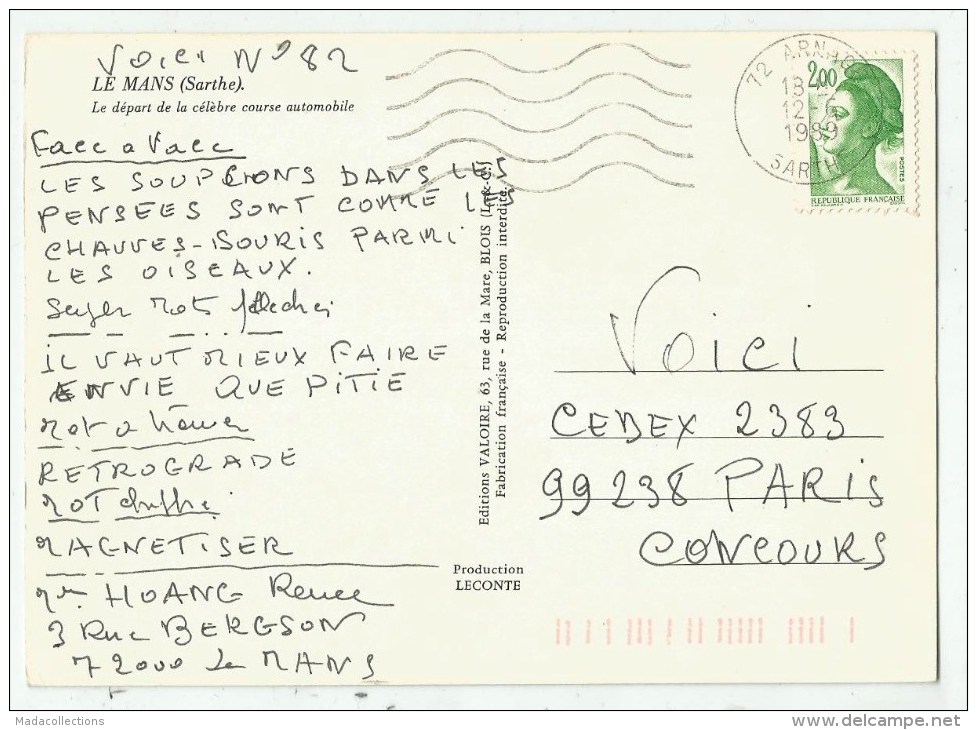 Voici N° 82
LE MANS (Sarthe).
Le départ de la célèbre course automobile
Face a Face
LES SOUPCONS DANS LES
PENSEES SONT COMME LES
CHAUVES-SOURIS PARMI
LES OISEAUX.
Super Mots fléchés
IL VAUT MIEUX FAIRE
ENVIE QUE PITIE
Mot a trouver
RETROGRADE
MOT chiffré
MAGNETISER
HOANG Renee
3 Rue BERGSON
72000 Le MANS
Editions VALOIRE, 63, rue de la Mare, BLOIS (L.-&-C.)
Fabrication française - Reproduction interdite.
Production
LECONTE
72 ARN
18
12-6
1989
SARTH
2,00
POSTES
REPUBLIQUE FRANÇAISE
Voici
CEDEX 2383
99238 PARIS
CONCOURS
Madacollections
www.delcampe.net